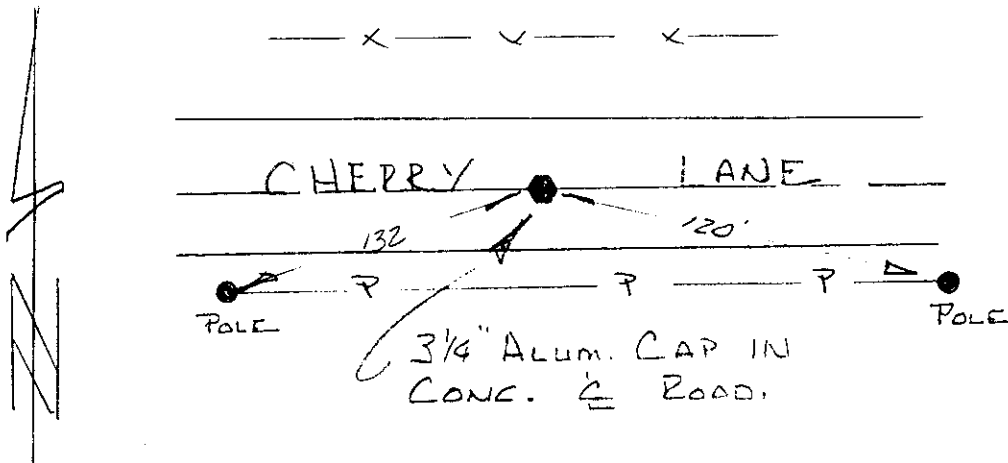 CHERRY LANE
132 120'
P P P
POLE POLE
3 1/4" ALUM. CAP IN
CONC. ℄ ROAD.
N